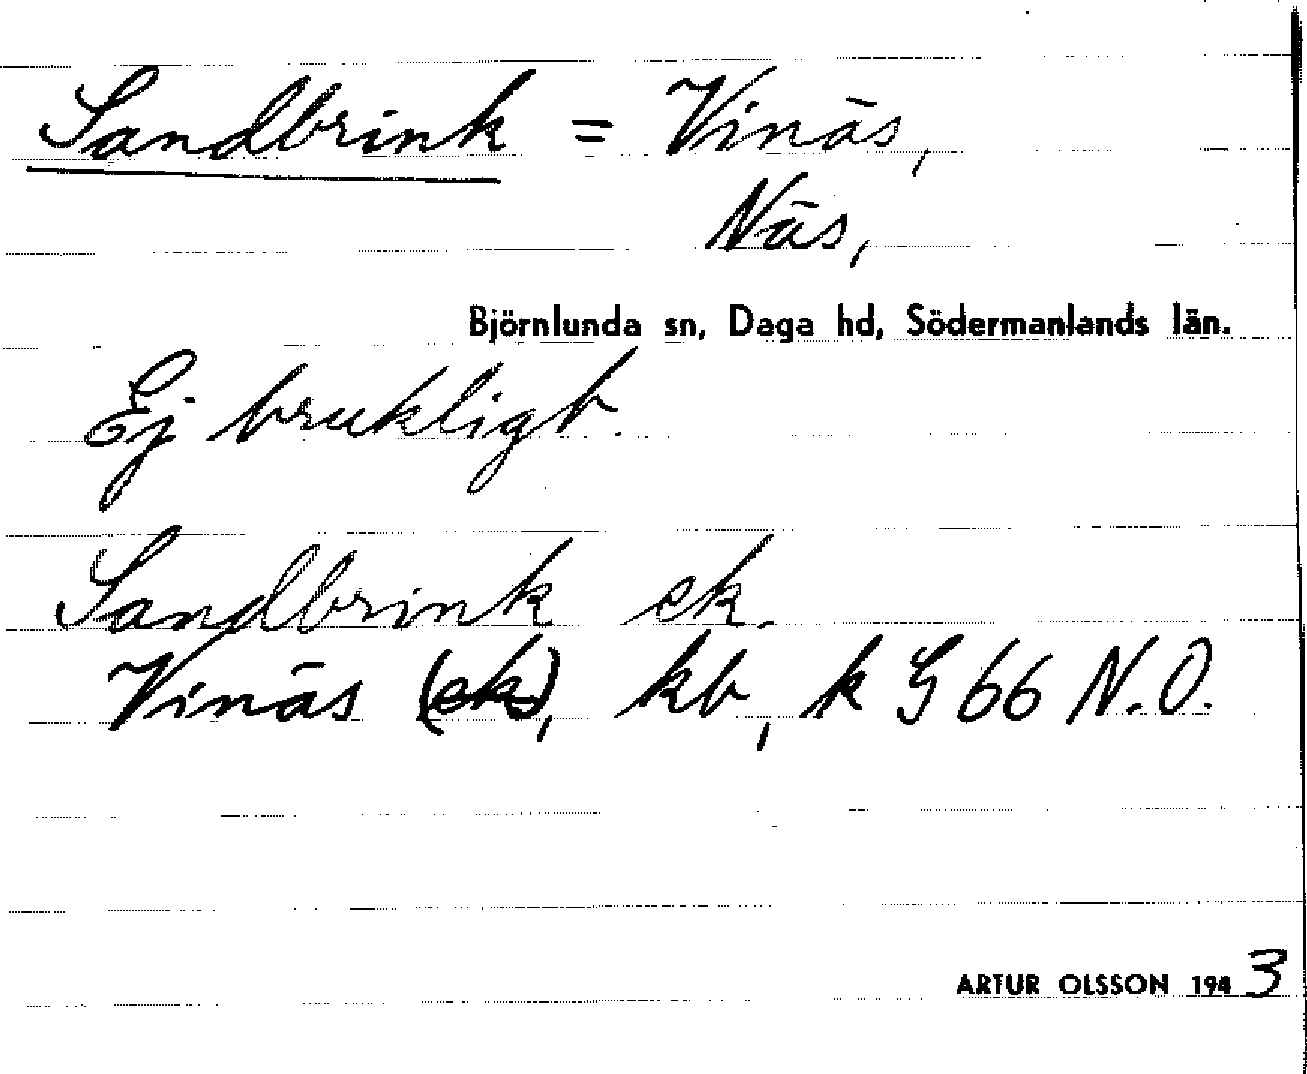 Sandbrink = Vinäs,
Näs,
Björnlunda sn, Daga hd, Södermanlands län.
Ej brukligt.
Sandbrink ek.
Vinäs (ek), kb, k G 66 N.O.
ARTUR OLSSON 1943